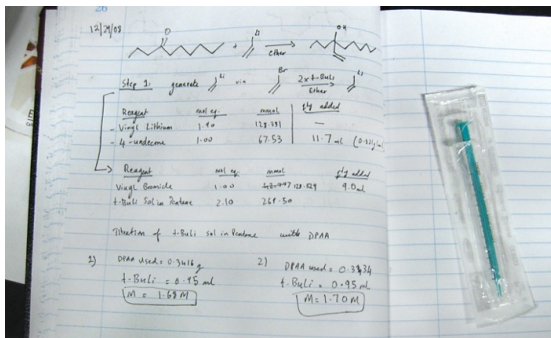 12/29/08
O
Li
OH
+
ether
Step 1: generate Li via Br 2x t-BuLi Li
Ether
Reagent mol eq. mmol qty added
- Vinyl Lithium 1.90 —
- 4-undecanone 1.00 67.53 11.7 ml
Reagent mol eq. mmol qty added
Vinyl Bromide 1.00 9.0 ml
t-BuLi Sol in Pentane 2.10
Titration of t-BuLi sol in Pentane with DPAA
1) DPAA used = 0.3416 g
t-BuLi = 0.95 ml
M = 1.69 M
2) DPAA used = 0.3434
t-BuLi = 0.95 ml
M = 1.70 M